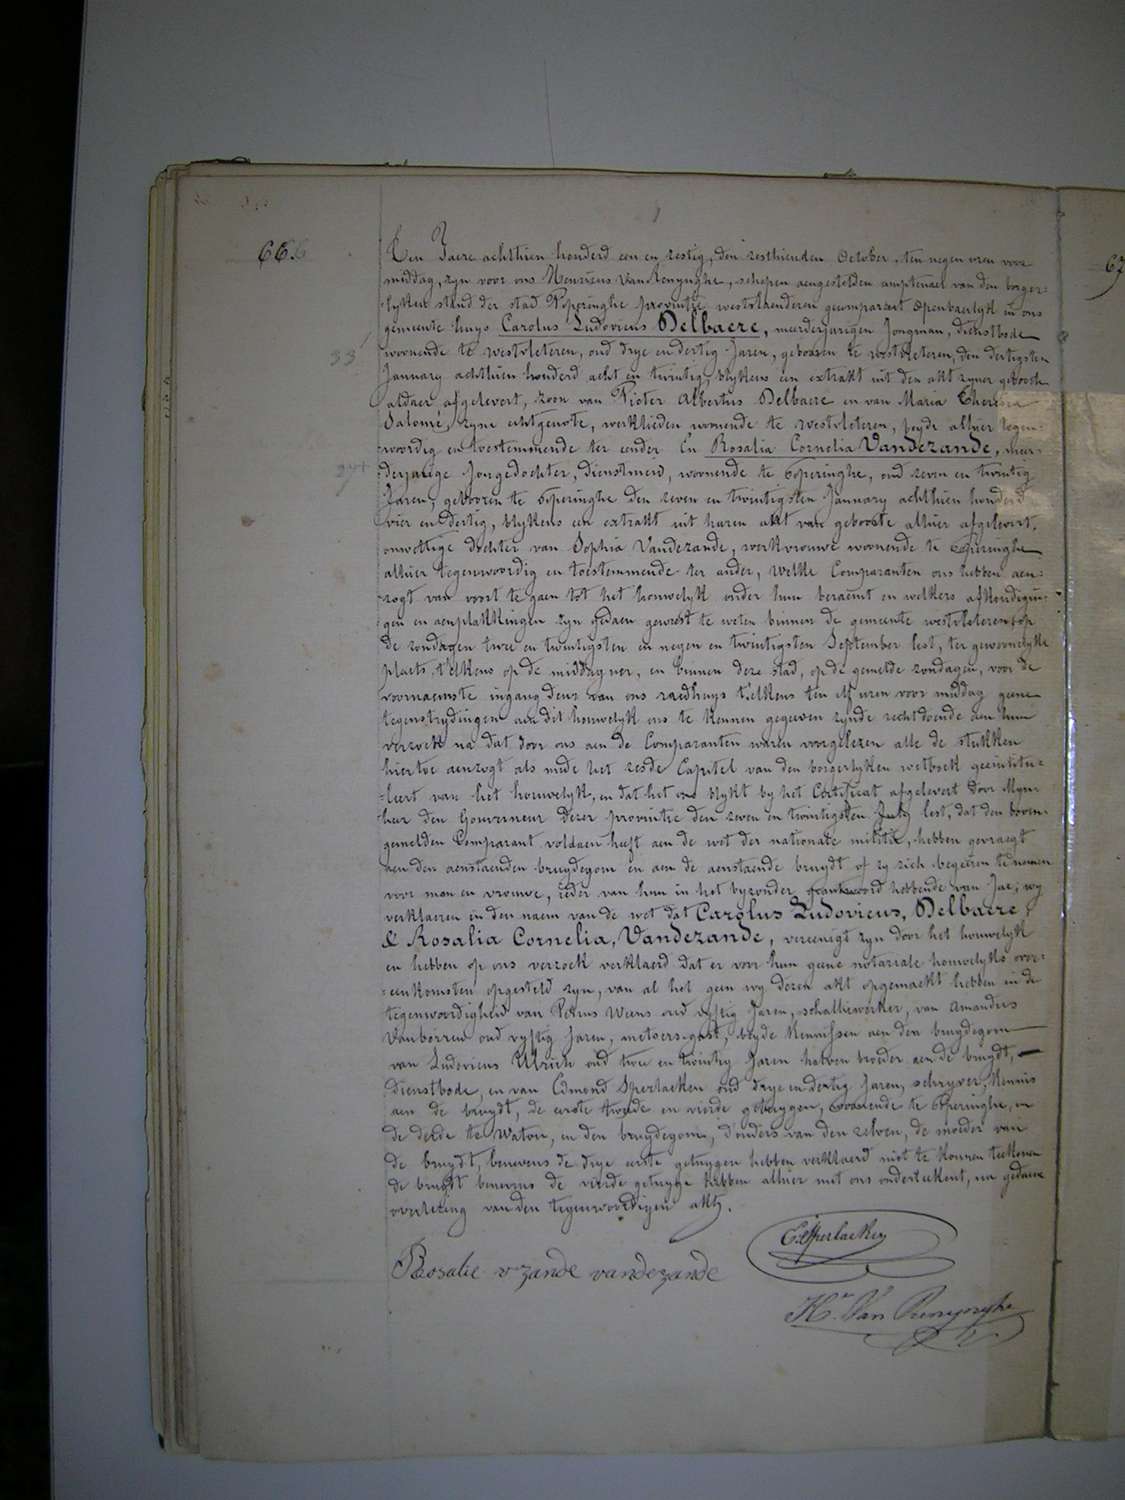 66.
67
Ten Jaere achthien honderd een en zestig, den zesthienden October, ten negen uren voor
middag, zyn voor ons Henricus Van Renynghe, schepen aengestelden amptenaer van den borger-
lyken stand der stad Poperinghe provintie westvlaenderen gecompareert openbaerlyk in ons
gemeente huys Carolus Ludovicus Delbaere, meerderjarigen Jongman, dienstbode
33
woonende te westvleteren, oud drye en dertig Jaren, gebooren te westvleteren, den dertigsten
January achthien honderd acht en twintig, blykens een extrakt uit den akt zyner geboorte
aldaer afgelevert, zoon van Pieter Albertus Delbaere en van Maria Theresia
Salomé, zyne echtgenote, werklieden woonende te westvleteren, beyde alhier tegen-
woordig en toestemmende ter eender En Rosalia Cornelia Vandezande, meer-
27
derjarige Jongedochter, dienstmeid, woonende te Poperinghe, oud zeven en twintig
Jaren, gebooren te Poperinghe den zeven en twintigsten January achthien honderd
vier en dertig, blykens een extrakt uit haren akt van geboorte alhier afgelevert,
onwettige dochter van Sophia Vandezande, werkvrouwe woonende te Poperinghe
alhier tegenwoordig en toestemmende ter ander, welke Comparanten ons hebben aen-
zogt van voort te gaen tot het houwelyk onder hun beraemt en welkers afkondigin-
gen en aenplakkingen zyn gedaen geweest te weten binnen de gemeente westvleteren op
de zondagen twee en twintigsten en negen en twintigsten September lest, ter gewoonelyke
plaets telkens op de middag uer, en binnen deze stad, op de gemelde zondagen, voor de
voornaemste ingang deur van ons raedhuys telkens ten elf uren voor middag geene
tegenstrydingen aen dit houwelyk ons te kennen gegeeven zynde rechtdoende aen hun
verzoek na dat door ons aen de Comparanten waren voorgelezen alle de stukken
hiertoe aenzogt als mede het zesde Capitel van den borgerlyken wetboek geeintitu-
leert van het houwelyk, en dat het ons blykt by het Certificat afgelevert door Myn-
heer den Gouverneur dezer provintie den zeven en twintigsten July lest, dat den boven-
gemelden Comparant voldaen heeft aen de wet der nationale militie, hebben gevraegt
aen den aenstaenden bruydegom en aen de aenstaende bruydt of zy zich begeeren te nemen
voor man en vrouwe, ieder van hun in het byzonder geantwoord hebbende van Jae; wy
verklaeren in den naem van de wet dat Carolus Ludovicus, Delbaere,
& Rosalia Cornelia, Vandezande, vereenigt zyn door het houwelyk
en hebben op ons verzoek verklaerd dat er voor hun geene notariale houwelyks over-
eenkomsten opgesteld zyn, van al het geen wy dezen akt opgemaekt hebben in de
tegenwoordigheid van Petrus Weens oud vyftig Jaren, schalliewerker, van Amandus
Vanborren oud vyftig Jaren, metsers-gast, beyde kennissen aen den bruydegom
van Ludovicus Ulrich oud twee en twintig Jaren halven broeder aen de bruydt,
dienstbode, en van Edmond Sperlaeken oud drye en dertig Jaren, schryver, kennis
aen de bruydt, de eerste tweede en vierde getuygen, woonende te Poperinghe, en
de derde te Watou, en den bruydegom, d'ouders van den zelven, de moeder van
de bruydt, benevens de drye eerste getuygen hebben verklaerd niet te konnen teekenen
de bruydt benevens de vierde getuyge hebben alhier met ons onderteekent, na gedaene
overlezing van den tegenwoordigen akt.
E. Sperlaeken
Rosalie vzande vandezande
Hri Van Renynghe